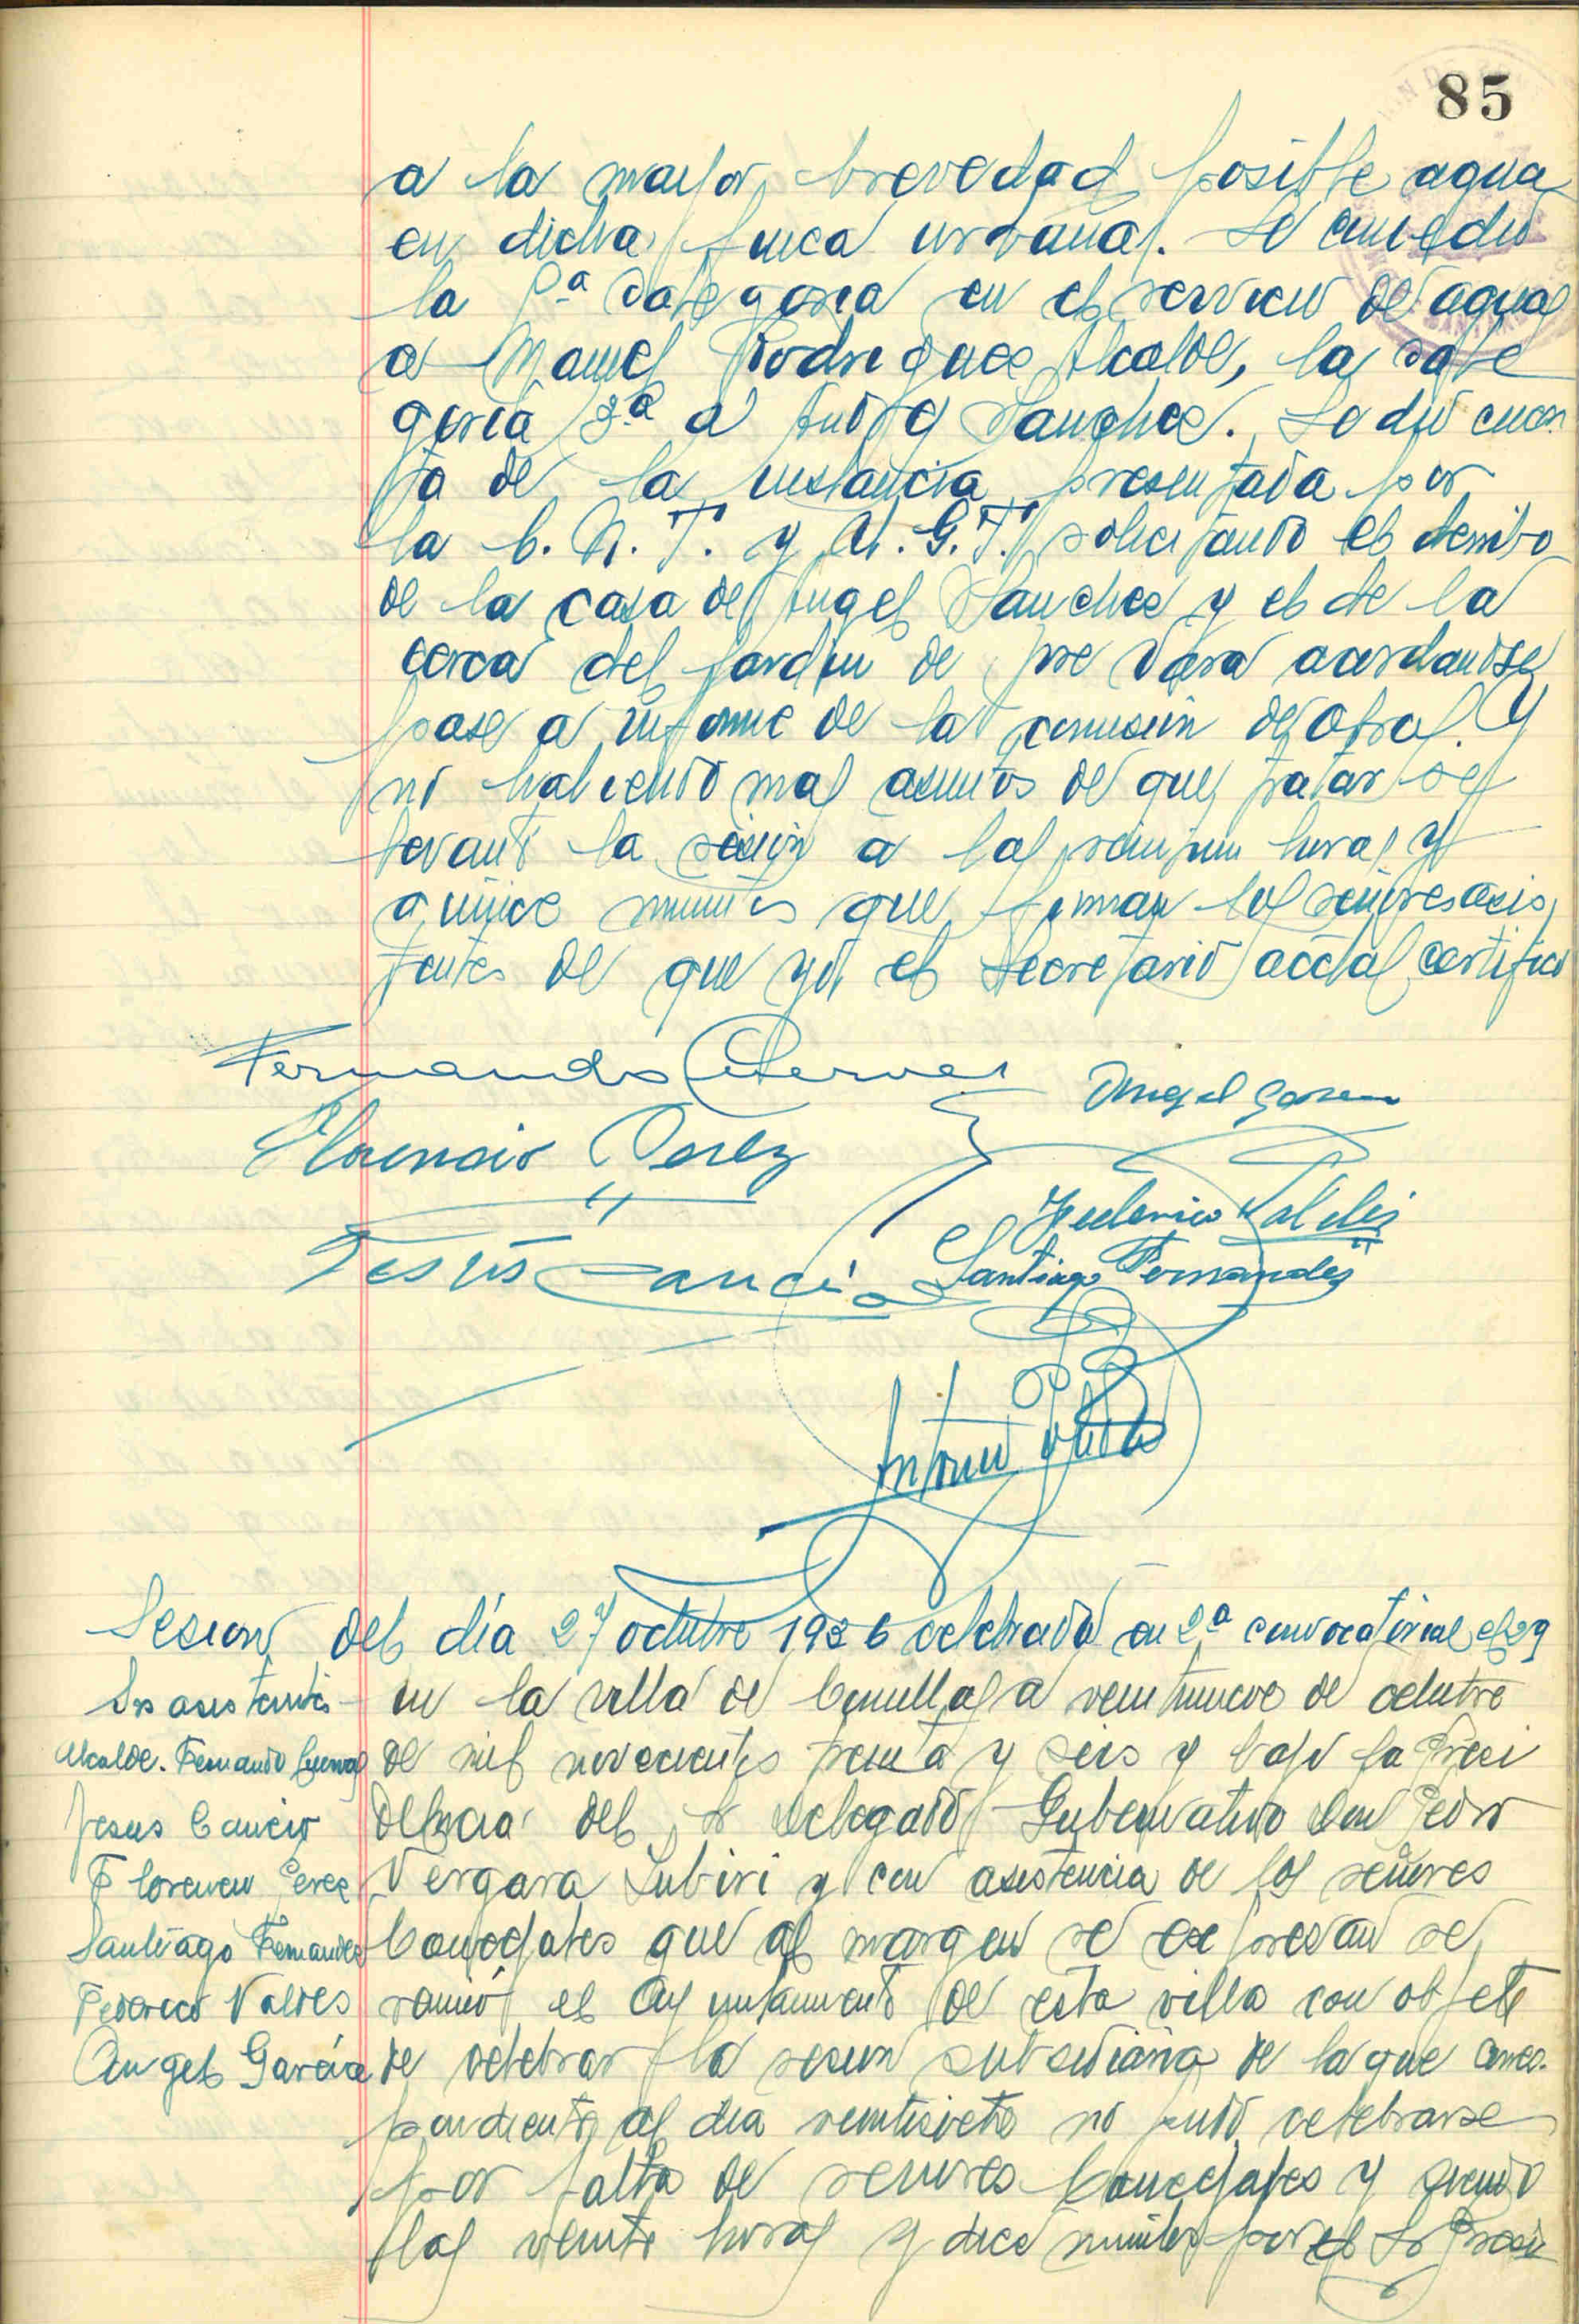 85
a la mayor brevedad posible agua
en dicha finca urbana. Se concedio
la categoria en el servicio de agua
a Manuel Rodriguez Alcalde, la cate
goria 3ª a Sanchez. Se dio cuen
ta de la instancia presentada por
la C. N. T. y U. G. T. solicitando el derribo
de la casa de Angel Sanchez y el de la
cerca del jardin de acordandose
pase a informe de la comisión de obras. Y
no habiendo mas asuntos de que tratar se
levantó la sesión a las horas y
quince minutos que firman los señores asis
tentes de que yo, el Secretario acctal certifico
Fernando Cuevas
Angel Garcia
Florencio Perez
Federico Valdés
Jesús Cancio
Santiago Fernandez
Antonio
Sesion del día 27 octubre 1936 celebrada en 2ª convocatoria el 29
Srs asistentes
Alcalde. Fernando Cuevas
Jesus Cancio
Florencio Perez
Santiago Fernandez
Federico Valdes
Angel García
en la villa de Comillas a veintinueve de octubre
de mil novecientos treinta y seis y bajo la Presi
dencia del Sr Delegado Gubernativo Don Pedro
Vergara Zubiri y con asistencia de los señores
Concejales que al margen se expresan se
reunió el Ayuntamiento de esta villa con objeto
de celebrar la sesion subsidiaria de la que corres-
pondiente al dia veintisiete no pudo celebrarse
por falta de señores Concejales y siendo
las veinte horas y diez minutos por el Sr Presi